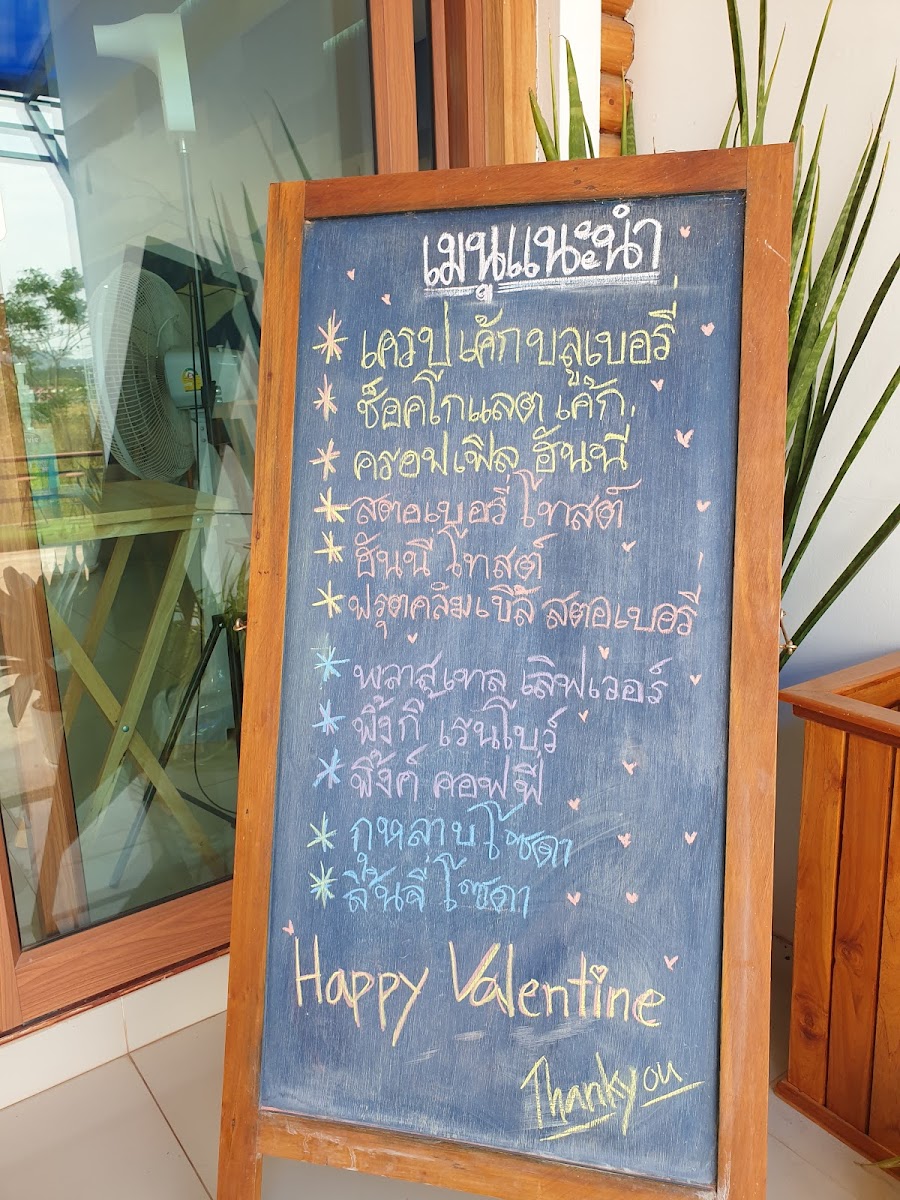 เมนูแนะนำ
* เครปเค้กบลูเบอรี่
* ช็อคโกแลต เค้ก.
* ครอฟเฟิล ฮันนี่
* สตอเบอรี่ โทสต์
* ฮันนี่ โทสต์
* ฟรุตคลีมชีส สตอเบอรี่
* พลาสเทล เลิฟเวอร์
* พิ้งกี้ เรนโบว์
* พิ้งค์ คอฟฟี่
* กุหลาบโซดา
* ลิ้นจี่ โซดา
Happy Valentine
Thank you